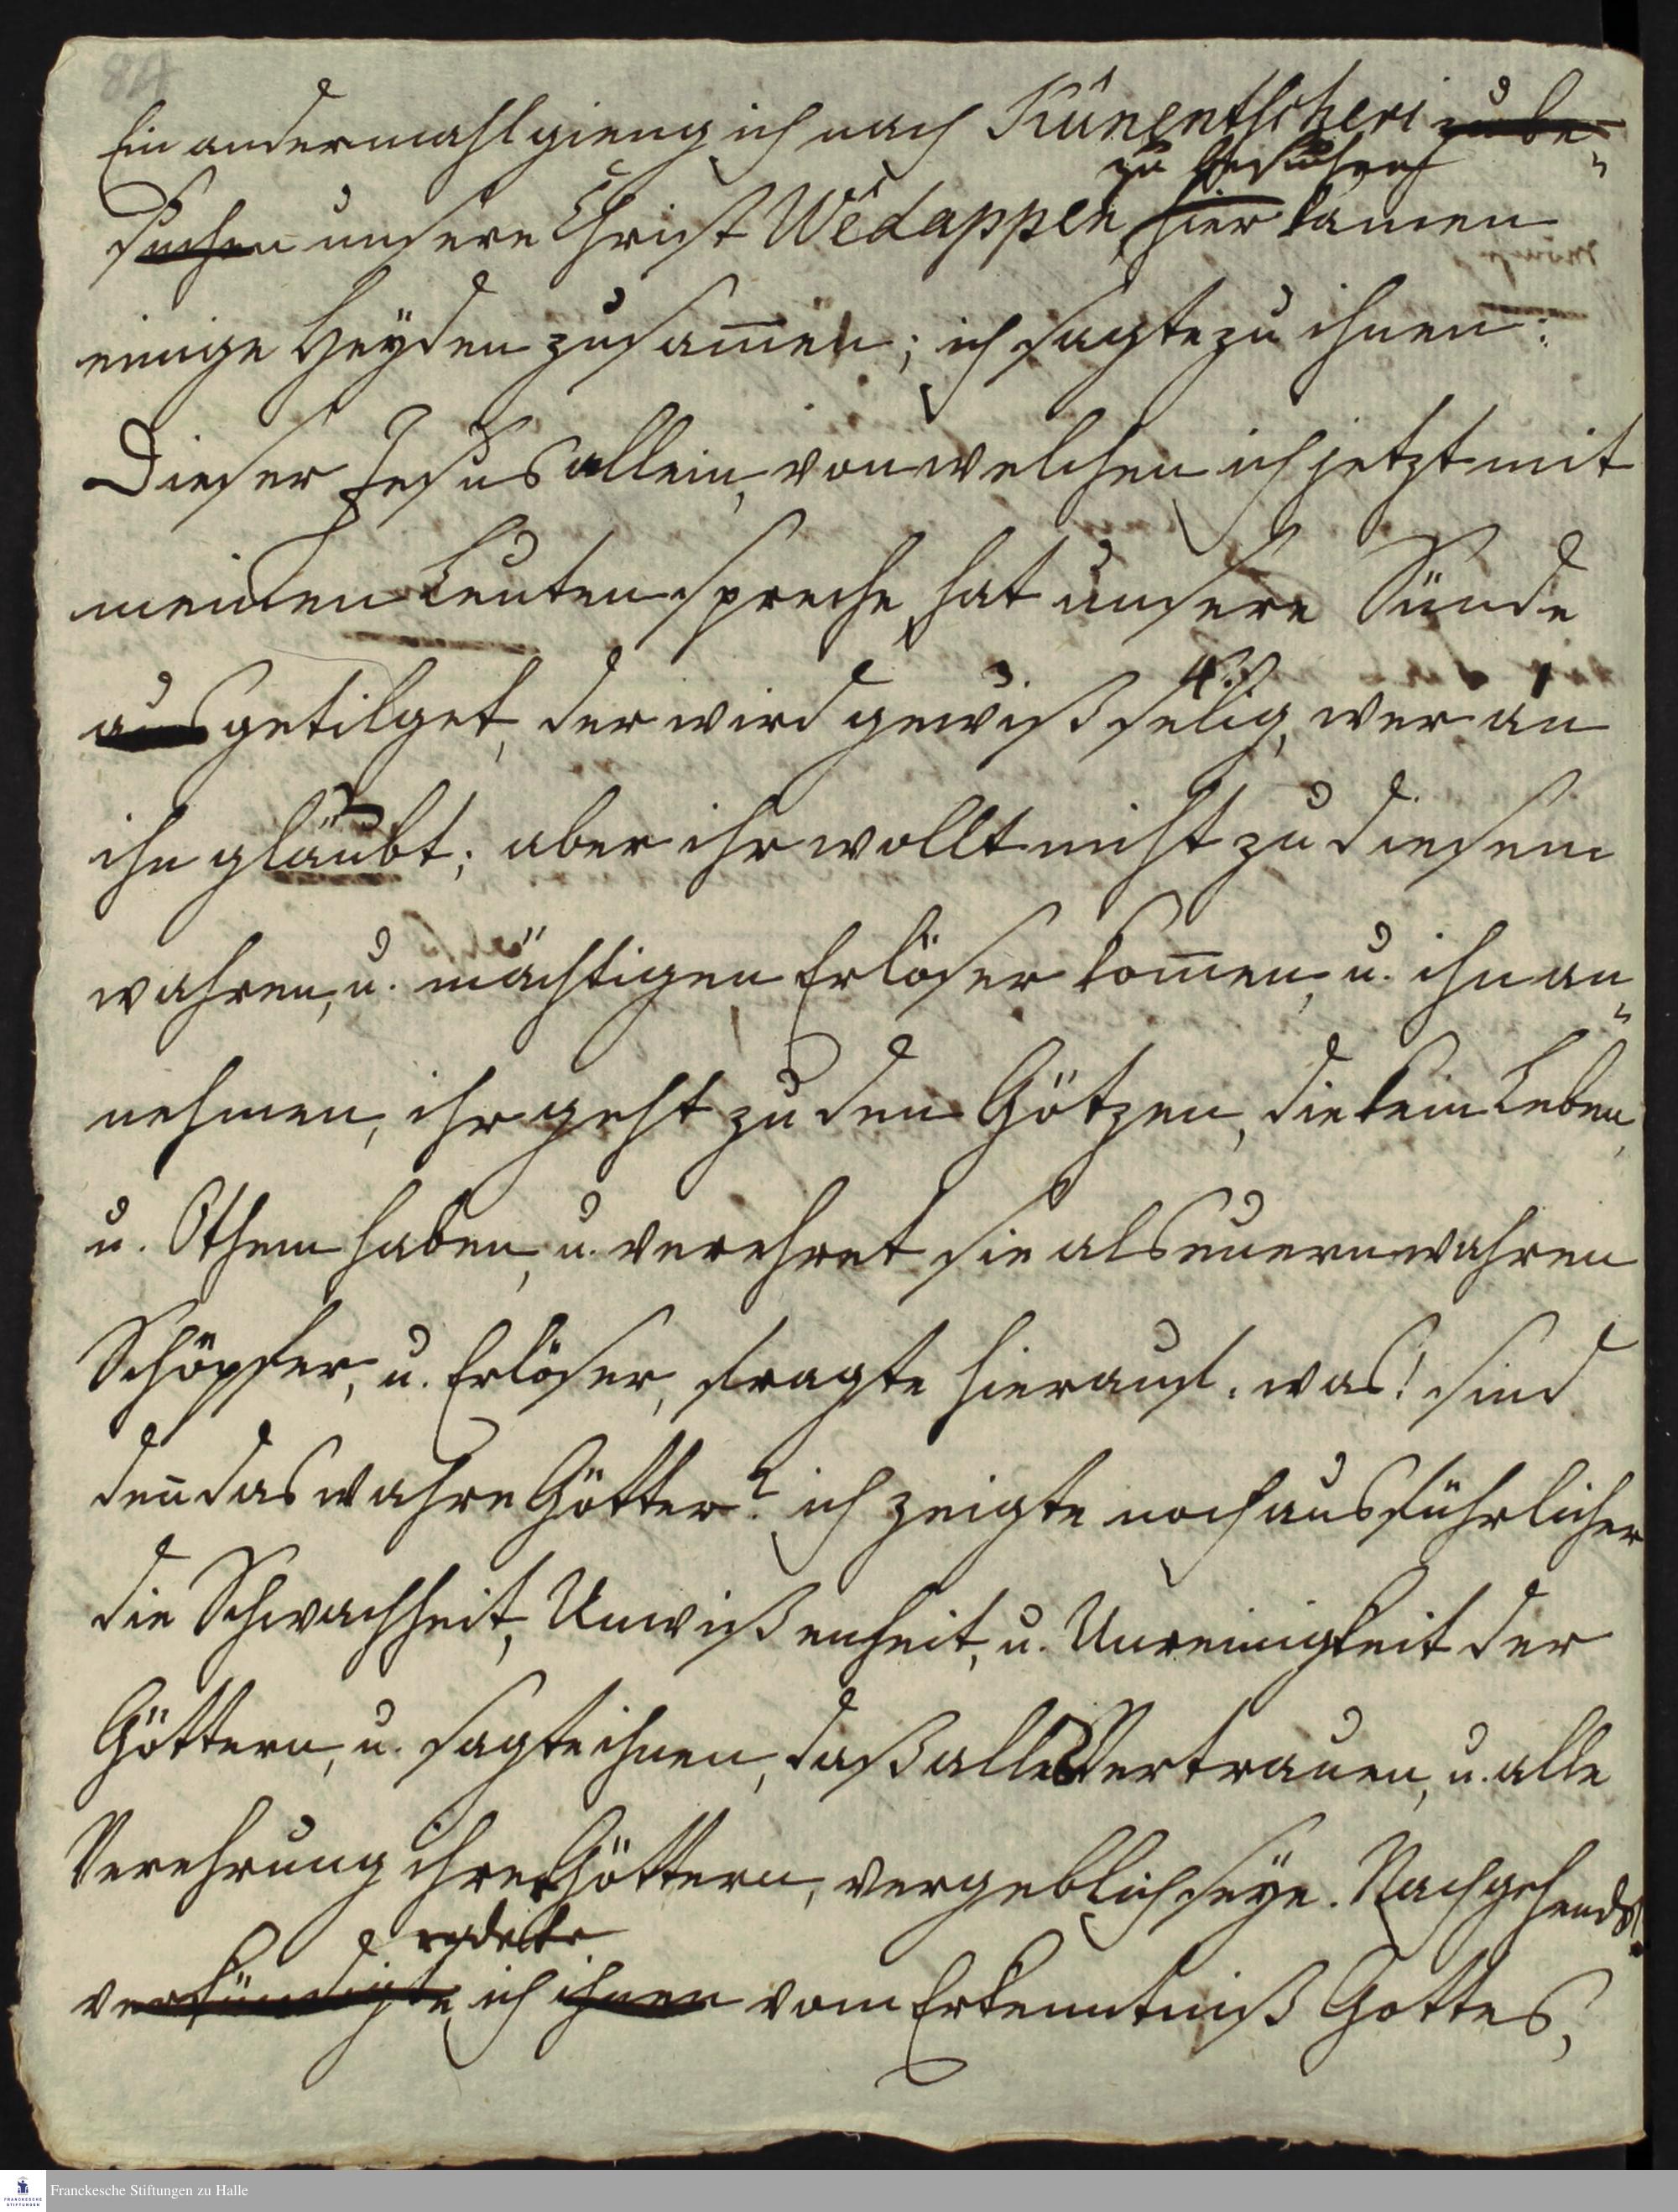 Ein andermahl gieng ich nach Künentscheri zu be-
zu besuchen
suchen unsere Christ Wêdappen, hier kamen
einige Heyden zusam̄en; ich sagte zu ihnen:
Dieser Jesus allein, von welchen ich jetzt mit
meinen Leuten spreche, hat unsere Sünde
ausgetilget, der wird gewiß selig, wer an
ihn gläubt; aber ihr wollt nicht zu diesem
wahren, u. mächtigen Erlöser kom̄en, u. ihn an-
nehmen, ihr geht zu den Götzen, die kein Leben,
u. Othem haben, u. verehret sie als euern wahren
Schöpfer, u. Erlöser, fragte hierauf: was! sind
den̄ das wahre Götter? ich zeigte noch ausführlicher
die Schwachheit, Unwißenheit, u. Unreinigkeit der
Göttern, u. sagte ihnen, daß alles Vertrauen, u. alle
Verehrung ihrer Göttern, vergeblich seye. Nachgehends
redete
verkündigte ich ihnen vom Erkenntniß Gottes,
Franckesche Stiftungen zu Halle